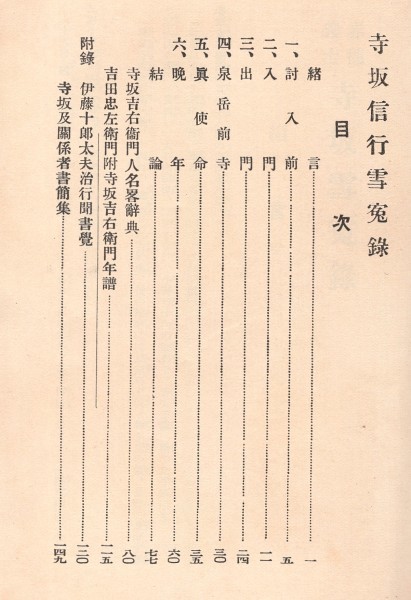 寺坂信行雪寃錄
目次
緖言……一
一、討入前……五
二、入門……一一
三、出門……二四
四、泉岳前寺……三〇
五、眞使命……三五
六、晩年……六〇
結論……七七
寺坂吉右衞門人名畧辭典……八〇
吉田忠左衞門附寺坂吉右衞門年譜……一一五
附錄 伊藤十郞太夫治行聞書覺……一二〇
寺坂及關係者書簡集……一四九